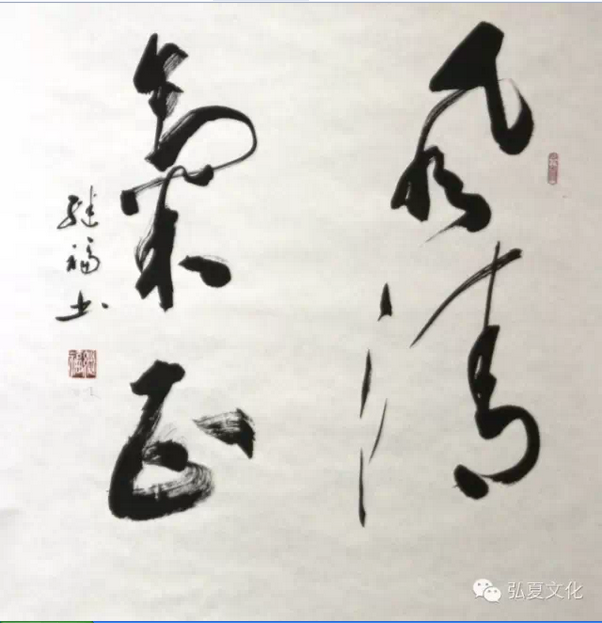 風清
氣正
继福书
弘夏文化